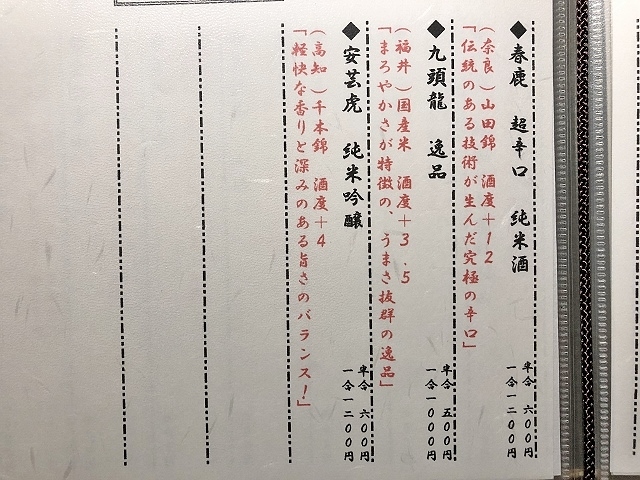 ◆春鹿　超辛口　純米酒
半合　六〇〇円
一合一二〇〇円
（奈良）山田錦　酒度＋１２
「伝統のある技術が生んだ究極の辛口」
◆九頭龍　逸品
半合　五〇〇円
一合一〇〇〇円
（福井）国産米　酒度＋３.５
「まろやかさが特徴の、うまさ抜群の逸品」
◆安芸虎　純米吟醸
半合　六〇〇円
一合一二〇〇円
（高知）千本錦　酒度＋４
「軽快な香りと深みのある旨さのバランス！」